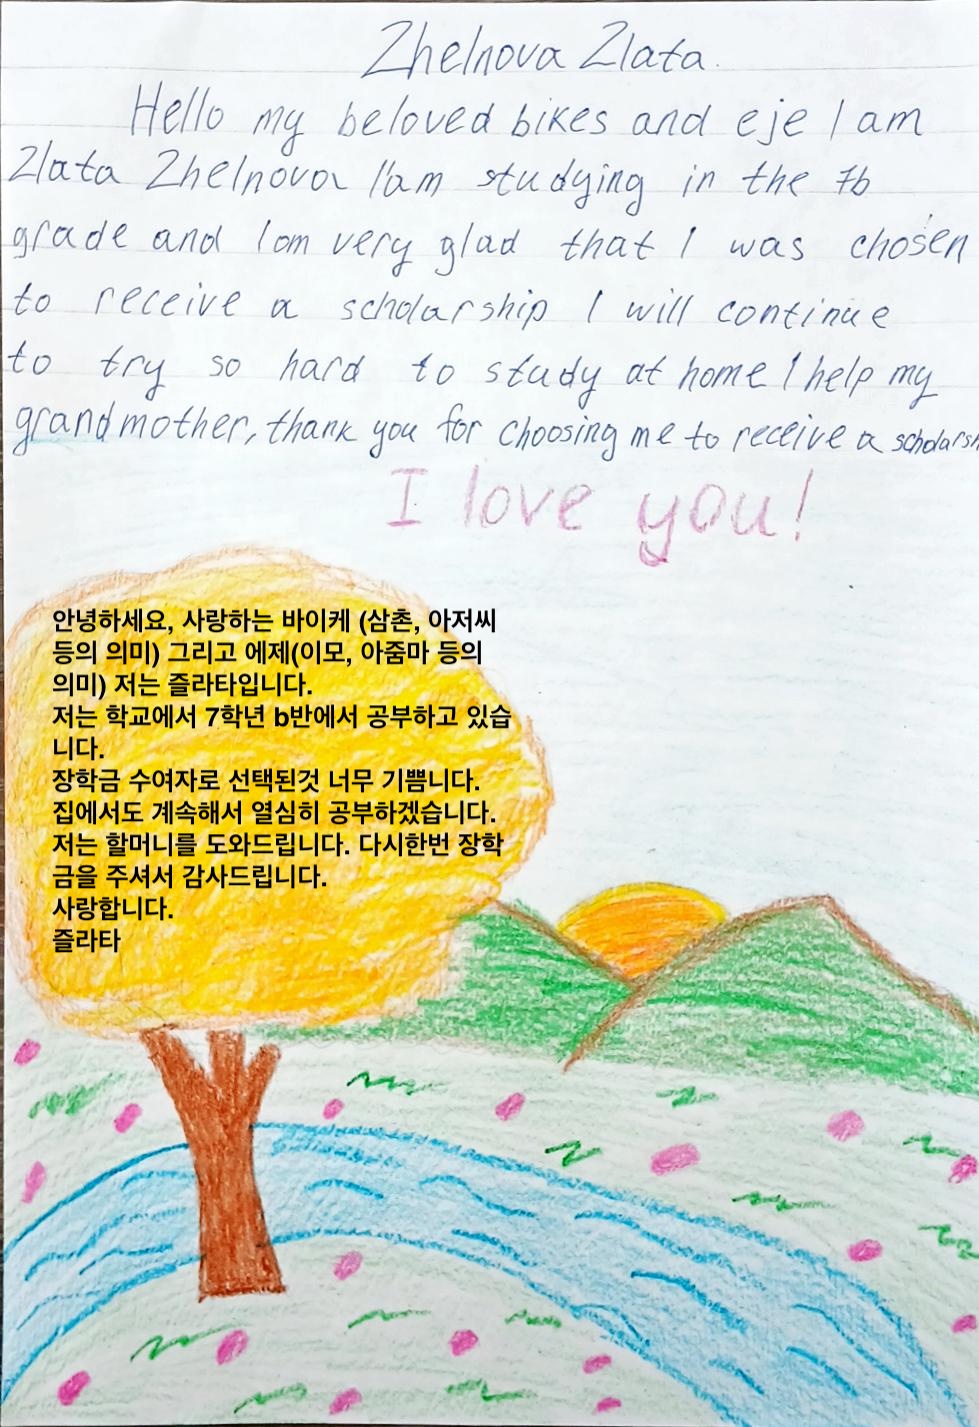 Zhelnova Zlata.
Hello my beloved bikes and eje I am
Zlata Zhelnova I'am studying in the 7b
grade and I am very glad that I was chosen
to receive a scholarship I will continue
to try so hard to study at home I help my
grandmother, thank you for choosing me to receive a scholarsh
I love you!
안녕하세요, 사랑하는 바이케 (삼촌, 아저씨
등의 의미) 그리고 에제(이모, 아줌마 등의
의미) 저는 즐라타입니다.
저는 학교에서 7학년 b반에서 공부하고 있습
니다.
장학금 수여자로 선택된것 너무 기쁨니다.
집에서도 계속해서 열심히 공부하겠습니다.
저는 할머니를 도와드립니다. 다시한번 장학
금을 주셔서 감사드립니다.
사랑합니다.
즐라타